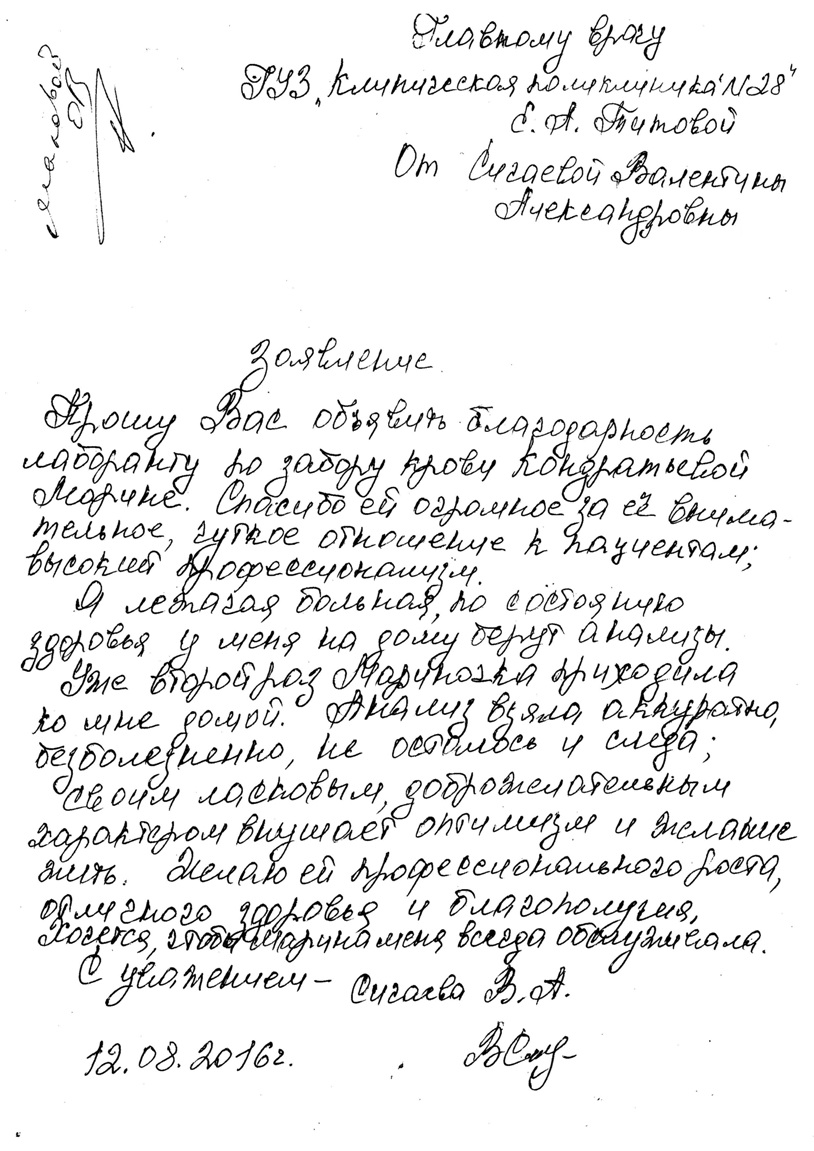 Маковой
ОВ
Главному врачу
ГУЗ „Клиническая поликлиника N28"
Е. А. Титовой
От Сигаевой Валентины
Александровны
Заявление
Прошу Вас объявить благодарность
лаборанту по забору крови Кондратьевой
Марине. Спасибо ей огромное за её внима-
тельное, чуткое отношение к пациентам;
высокий профессионализм.
Я лежачая больная, по состоянию
здоровья у меня на дому берут анализы.
Уже второй раз Мариночка приходила
ко мне домой. Анализ взяла аккуратно,
безболезненно, не осталось и следа;
своим ласковым, доброжелательным
характером внушает оптимизм и желание
жить. Желаю ей профессионального роста,
отличного здоровья и благополучия,
Хочется, чтобы Марина меня всегда обслуживала.
С уважением – Сигаева В. А.
12.08.2016г.